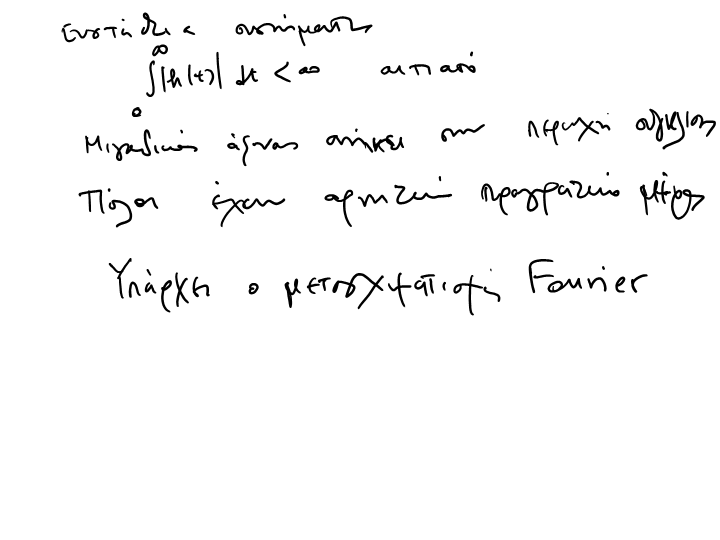 Ευστάθεια συστήματος
∫₀^∞ |h(t)| dt < ∞ αιτιατό
Μιγαδικός άξονας ανήκει στην περιοχή σύγκλισης
Πόλοι έχουν αρνητικό πραγματικό μέρος
Υπάρχει ο μετασχηματισμός Fourier